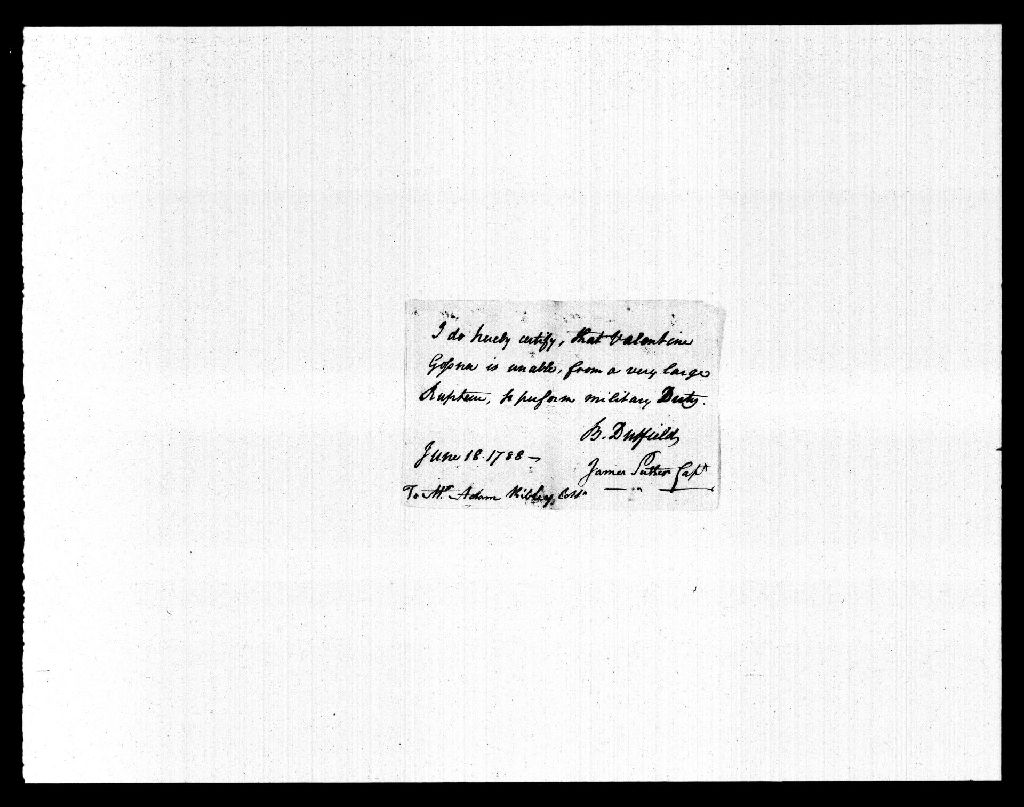 I do hereby certify, that Valentine
is unable, from a very large
Rupture, to perform military Duty.
B. Duffield
June 18 1788 –
James Capt
To Mr Adam